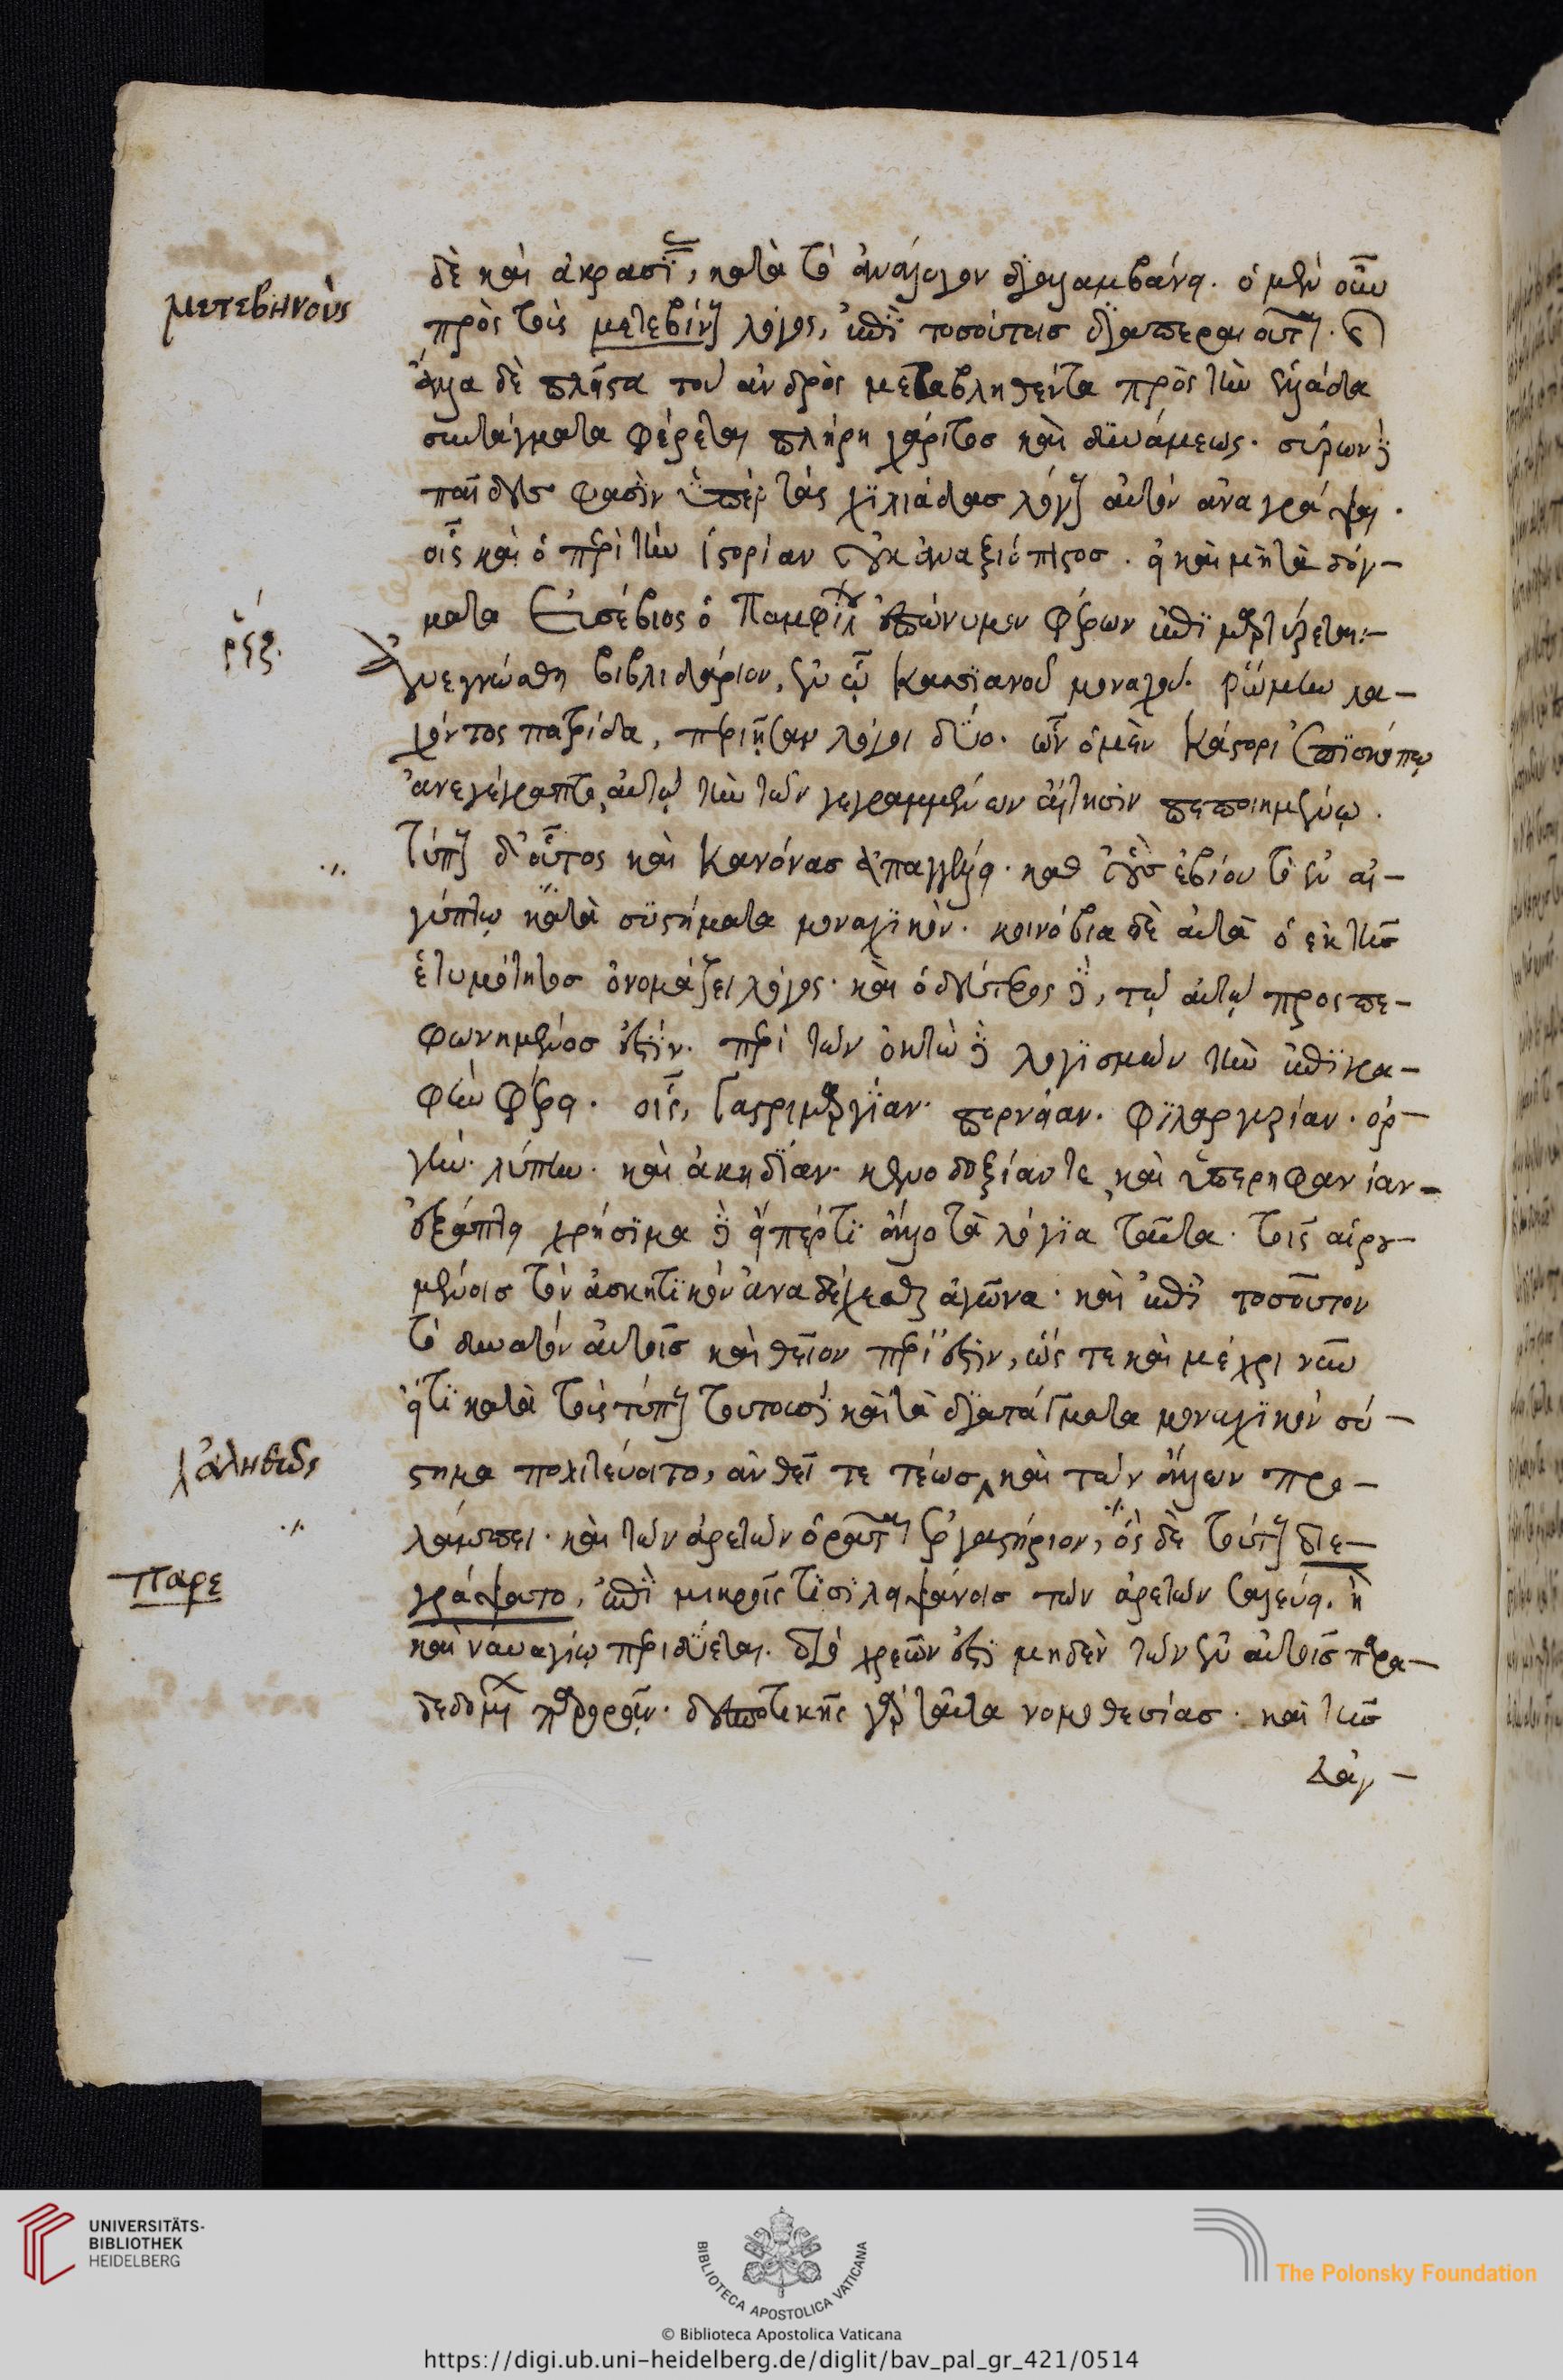 δὲ καὶ ἀκρασίας, κατὰ τὸ ἀνάλογον διαλαμβάνει. ὁ μὲν οὖν
μετεβηνοὺς
πρὸς τοὺς μετεβίνους λόγος, ἐπὶ τοσούτοις διαπεραιοῦται.
ἄλλα δὲ πλεῖστα τοῦ ἀνδρὸς μεταβληθέντα πρὸς τὴν ἑλλάδα
συντάγματα φέρεται πλήρη χάριτος καὶ δυνάμεως. σύρων δὲ
παῖδες φασὶν ὑπὲρ τὰς χιλιάδας λόγους αὐτὸν ἀναγράψαι.
οἷς καὶ ὁ περὶ τὴν ἱστορίαν οὐκ ἀναξιόπιστος. εἰ καὶ μὴ τὰ δόγ-
ματα Εὐσέβιος ὁ Παμφίλου ἐπώνυμον φέρων ἐπιμαρτύρεται:-
ρϟζ.
Ἀνεγνώσθη βιβλιδάριον, ἐν ᾧ Κασσιανοῦ μοναχοῦ. Ῥώμην λα-
χόντος πατρίδα, περιῆσαν λόγοι δύο. ὧν ὁ μὲν Κάστορι ἐπισκόπῳ
ἀνεγέγραπτο, αὐτῷ τὴν τῶν γεγραμμένων αἴτησιν πεποιημένῳ.
τύπους δ' οὗτος καὶ κανόνας ἀπαγγέλλει. καθ' οὓς ἐβίου τὸ ἐν αἰ-
γύπτῳ κατὰ συστήματα μοναχικόν. κοινόβια δὲ αὐτὰ ὁ ἐκ τῆς
ἑτυμότητος ὀνομάζει λόγος. καὶ ὁ δεύτερος δὲ, τῷ αὐτῷ προςπε-
φωνημένος ἐστίν. περὶ τῶν ὀκτὼ δὲ λογισμῶν τὴν ἐπιγρα-
φὴν φέρει. οἷς, Γαστριμαργίαν. πορνείαν. φιλαργυρίαν. ὀρ-
γὴν. λύπην. καὶ ἀκηδίαν. κενοδοξίαν τε, καὶ ὑπερηφανίαν-
ἐξάπτει χρήσιμα δὲ εἴπερ τι ἄλλο τὰ λόγια ταῦτα. τοῖς αἱρου-
μένοις τὸν ἀσκητικὸν ἀναδέχεσθαι ἀγῶνα. καὶ ἐπὶ τοσοῦτον
τὸ δυνατὸν αὐτοῖς καὶ θεῖον περίεστιν, ὥς τε καὶ μέχρι νῦν
εἴ τι κατὰ τοὺς τύπους τούτους καὶ τὰ διατάγματα μοναχικὸν σύ-
στημα πολιτεύοιτο, ἀνθεῖ τε τέως, καὶ τῶν ἄλλων προ-
ἀληθῶς
λάμπει. καὶ τῶν ἀρετῶν ὁρᾶται ἐργαστήριον, ὃς δὲ τούτους διε-
παρε
γράψατο, ἐπὶ μικροῖς τισι λειψάνοις τῶν ἀρετῶν σαλεύει. ἢ
καὶ ναυαγίῳ περιδύεται. διὸ χρεών ἐστι μηδὲν τῶν ἐν αὐτοῖς παρα-
δεδομένων παρορᾶν. δεσποτικῆς γὰρ ταῦτα νομοθεσίας. καὶ τῆς